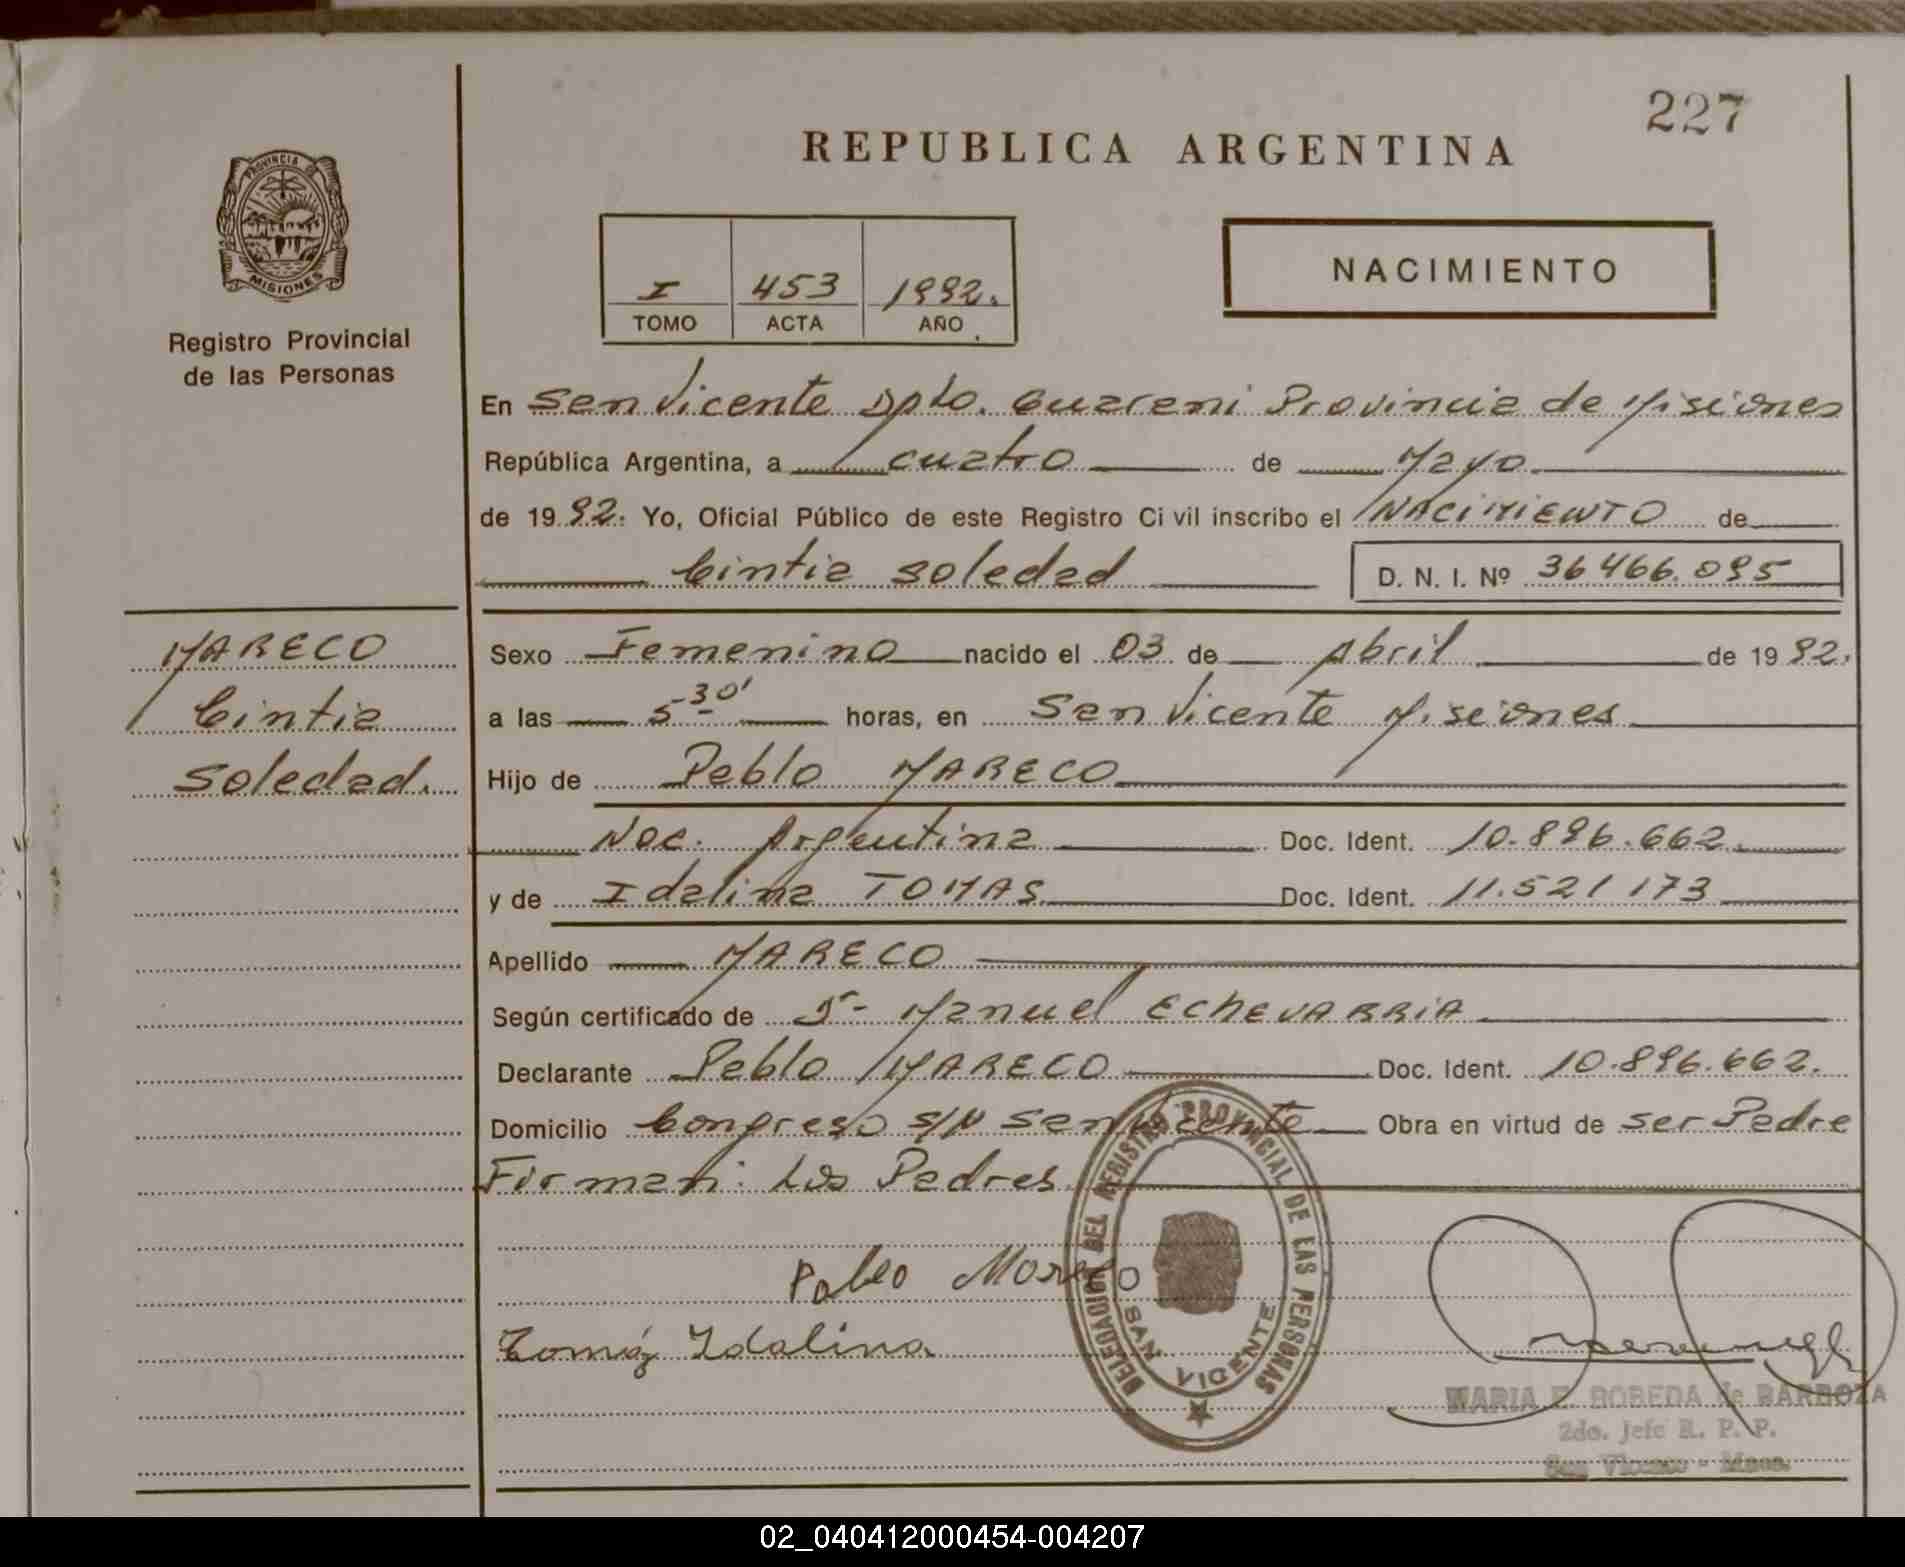 227
REPUBLICA ARGENTINA
PROVINCIA DE
MISIONES
Registro Provincial
de las Personas
I 453 1992.
TOMO ACTA AÑO
NACIMIENTO
En San Vicente Dpto. Guarani Provincia de Misiones
República Argentina, a cuatro de Mayo
de 1992. Yo, Oficial Público de este Registro Civil inscribo el NACIMIENTO de
Cintia Soledad D. N. I. Nº 36.466.095
MARECO
Cintia
Soledad.
Sexo Femenino nacido el 03 de Abril de 1992.
a las 5-30' horas, en San Vicente Misiones
Hijo de Pablo MARECO
Nac. Argentina Doc. Ident. 10.896.662
y de Idalina TOMAS Doc. Ident. 11.521.173
Apellido MARECO
Según certificado de Dr- Manuel ECHEVARRIA
Declarante Pablo MARECO Doc. Ident. 10.896.662.
Domicilio Congreso S/N San Vicente Obra en virtud de ser Padre
Firman: Los Padres
Pableo Mareco
Tomáz Idalina
DELEGACION DEL REGISTRO PROVINCIAL DE LAS PERSONAS
SAN VICENTE
MARIA E. BOBEDA de BARBOZA
2do. Jefe R. P. P.
San Vicente - Mnes.
02_040412000454-004207